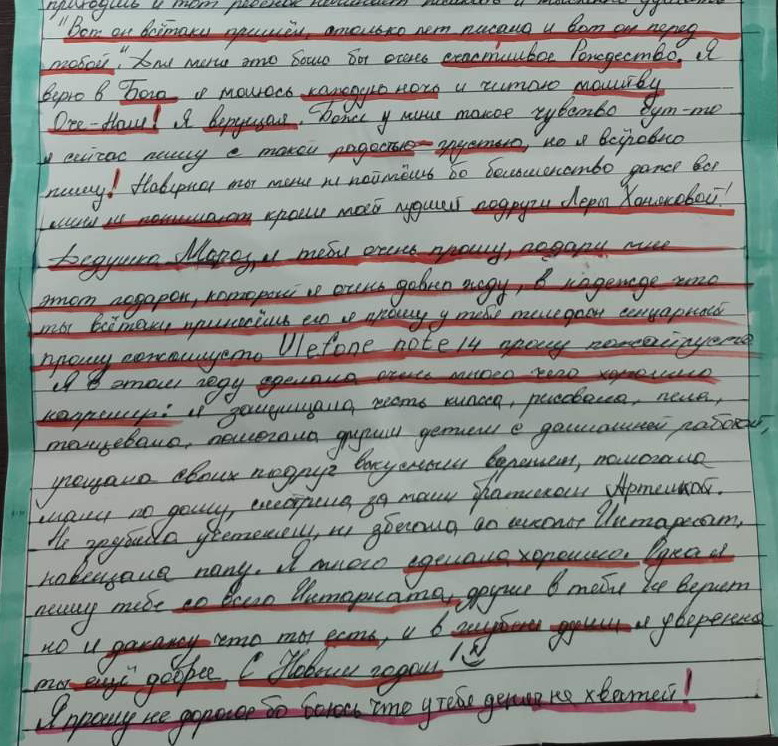 приходишь и тот ребёнок начинает
"Вот он всётаки пришёл, столько лет писала и вот он перед
тобой". Для меня это было бы очень счастливое Рождество. Я
верю в Бога я молюсь каждую ночь и читаю молитву
Оче-Наш! Я верущая. Боже у меня такое чувство бут-то
я сейчас пишу с такой радостью-грустью, но я всёровно
пишу! Наверное ты меня не поймёшь бо большенство даже все
меня не понимают кроме моей лудшей подруги Леры
Дедушка Мороз, я тебя очень прошу, подари мне
этот подарок, который я очень давно жду, в надежде что
ты всётаки принесёшь его я прошу у тебя теледон сенцарный
прошу пожалуйсто Ulefone note 14 прошу пожайлусто
Я в этом году сделала очень много чего хорошого
например: я защищала честь класса, рисовала, пела,
танцевала, помогала другим детям с домашней работой,
угощала своих подруг вкусным варением, помогала
маме по дому, смотрела за моим братиком Артёмкой.
Не грубила учетелям, не збегала со школы Интарнат,
навещала папу. Я много сделала хорошого. Одна я
пишу тебе со всего Интарната, другие в тебя не верят
но я дакажу что ты есть, и в глубине души я уверенна
ты ещё добрее С Новым годом!
Я прошу не дорогое бо боюсь что у тебя денег не хватей!